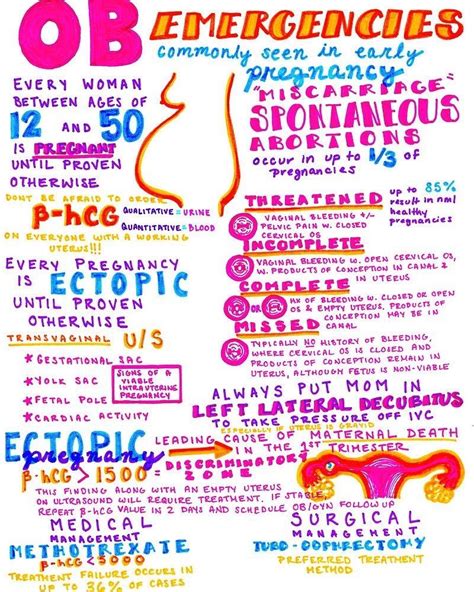 OB EMERGENCIES
commonly seen in early
pregnancy
EVERY WOMAN
BETWEEN AGES OF
12 AND 50
IS PREGNANT
UNTIL PROVEN
OTHERWISE
DONT BE AFRAID TO ORDER
β-hCG
QUALITATIVE = URINE
QUANTITATIVE = BLOOD
ON EVERYONE WITH A WORKING
UTERUS!!!
"MISCARRIAGE"
SPONTANEOUS
ABORTIONS
occur in up to 1/3 of
pregnancies
THREATENED
up to 85%
result in nml
healthy
pregnancies
VAGINAL BLEEDING +/-
PELVIC PAIN W. CLOSED
CERVICAL OS
INCOMPLETE
VAGINAL BLEEDING W. OPEN CERVICAL OS,
W. PRODUCTS OF CONCEPTION IN CANAL &
IN UTERUS
COMPLETE
OR
HX OF BLEEDING W. CLOSED OR OPEN
OS & EMPTY UTERUS, PRODUCTS OF
CONCEPTION MAY BE IN
CANAL
MISSED
TYPICALLY NO HISTORY OF BLEEDING,
WHERE CERVICAL OS IS CLOSED AND
PRODUCTS OF CONCEPTION REMAIN IN
UTERUS, ALTHOUGH FETUS IS NON-VIABLE
EVERY PREGNANCY
IS ECTOPIC
UNTIL PROVEN
OTHERWISE
TRANSVAGINAL U/S
GESTATIONAL SAC
YOLK SAC
FETAL POLE
CARDIAC ACTIVITY
SIGNS OF A
VIABLE
INTRAUTERINE
PREGNANCY
ALWAYS PUT MOM IN
LEFT LATERAL DECUBITUS
TO TAKE PRESSURE OFF IVC
ESPECIALLY IF UTERUS IS GRAVID
ECTOPIC
pregnancy
LEADING CAUSE OF MATERNAL DEATH
IN THE 1ST TRIMESTER
β-hCG > 1500 = DISCRIMINATORY
ZONE
THIS FINDING ALONG WITH AN EMPTY UTERUS
ON ULTRASOUND WILL REQUIRE TREATMENT. IF STABLE,
REPEAT β-hCG VALUE IN 2 DAYS AND SCHEDULE OB/GYN FOLLOW UP
MEDICAL
MANAGEMENT
METHOTREXATE
β-hCG <5000
TREATMENT FAILURE OCCURS IN
UP TO 36% OF CASES
SURGICAL
MANAGEMENT
TUBO-OOPHRECTOMY
PREFERRED TREATMENT
METHOD